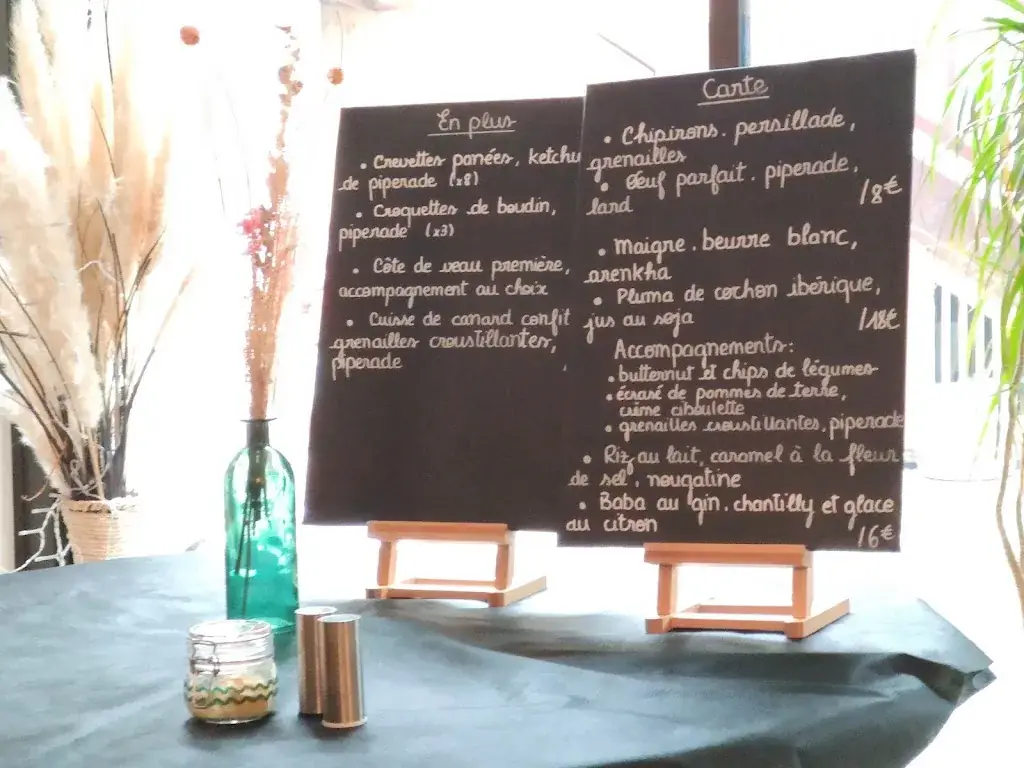 En plus
• Crevettes panées, ketchu
de piperade (x8)
• Croquettes de boudin,
piperade (x3)
• Côte de veau première,
accompagnement au choix
• Cuisse de canard confit
grenailles croustillantes,
piperade
Carte
• Chipirons. persillade,
grenailles
• Œuf parfait. piperade,
lard
/8€
• Maigre. beurre blanc,
arenkha
• Pluma de cochon ibérique,
jus au soja
/18€
Accompagnements:
• butternut et chips de légumes
• écrasé de pommes de terre,
crème ciboulette
• grenailles croustillantes, piperade
• Riz au lait, caramel à la fleur
de sel, nougatine
• Baba au gin. chantilly et glace
au citron
/6€